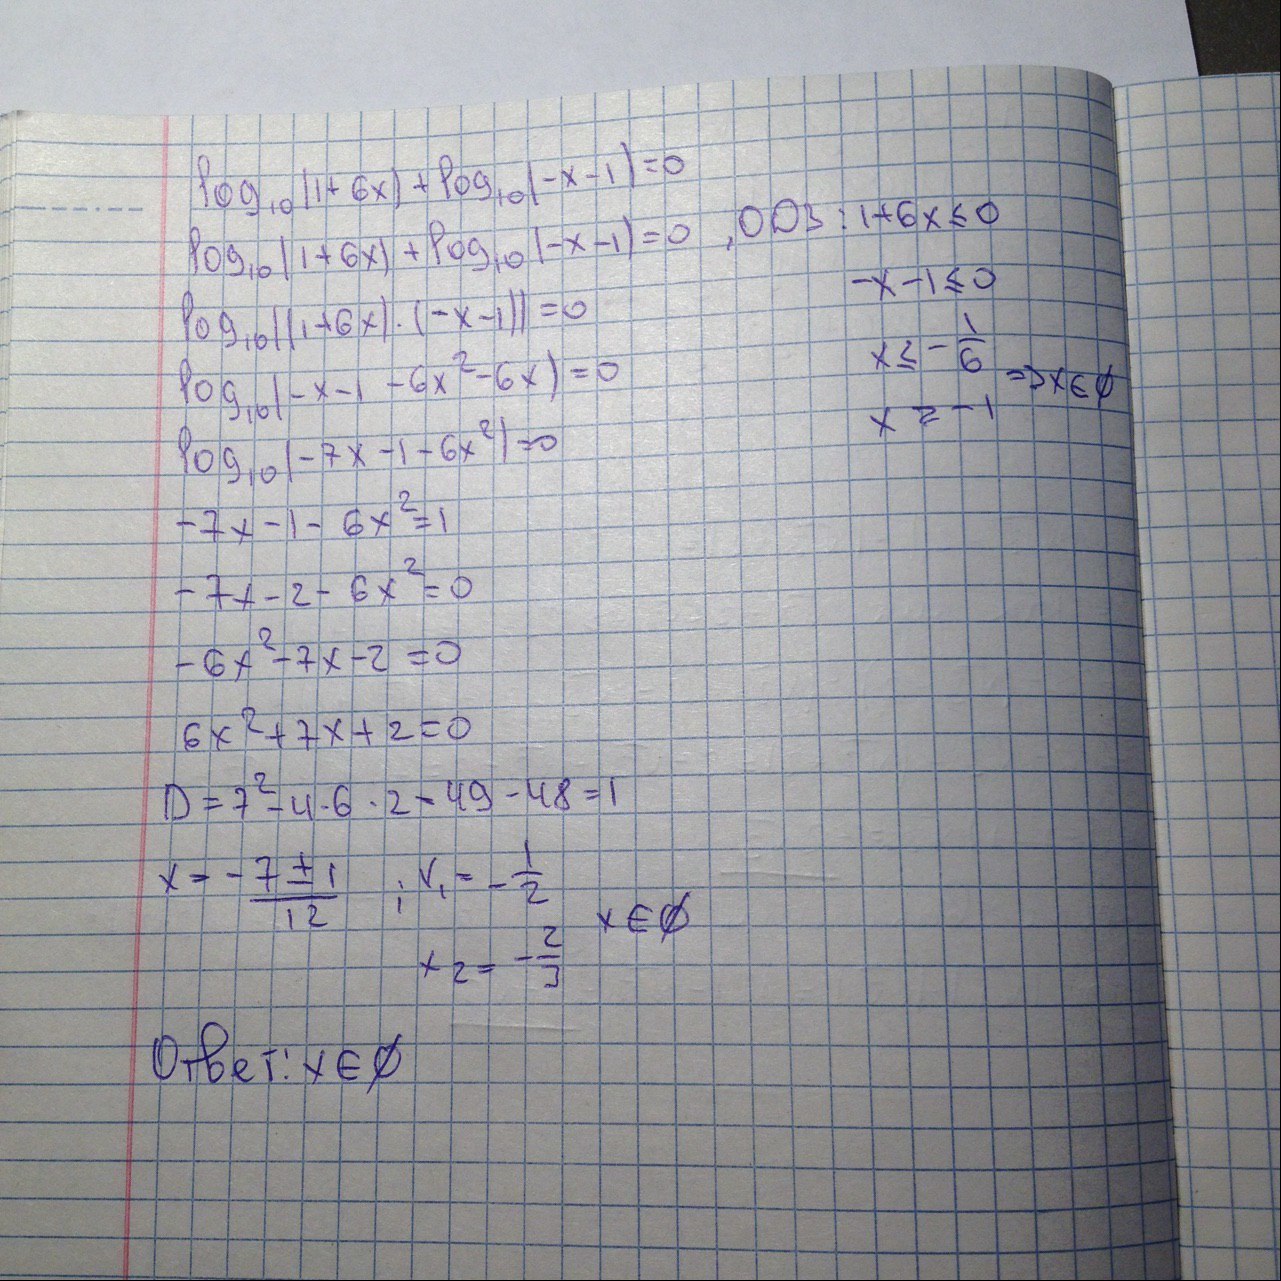 log₁₀(1+6x)+log₁₀(-x-1)=0
log₁₀(1+6x)+log₁₀(-x-1)=0 , ОДЗ: 1+6x≤0
-x-1≤0
log₁₀((1+6x)·(-x-1))=0
x≤-1/6
log₁₀(-x-1-6x²-6x)=0
=>x∈∅
x≥-1
log₁₀(-7x-1-6x²)=0
-7x-1-6x²=1
-7x-2-6x²=0
-6x²-7x-2=0
6x²+7x+2=0
D=7²-4·6·2=49-48=1
x=-7±1/12 ; x₁=-1/2
x∈∅
x₂=-2/3
Ответ: x∈∅